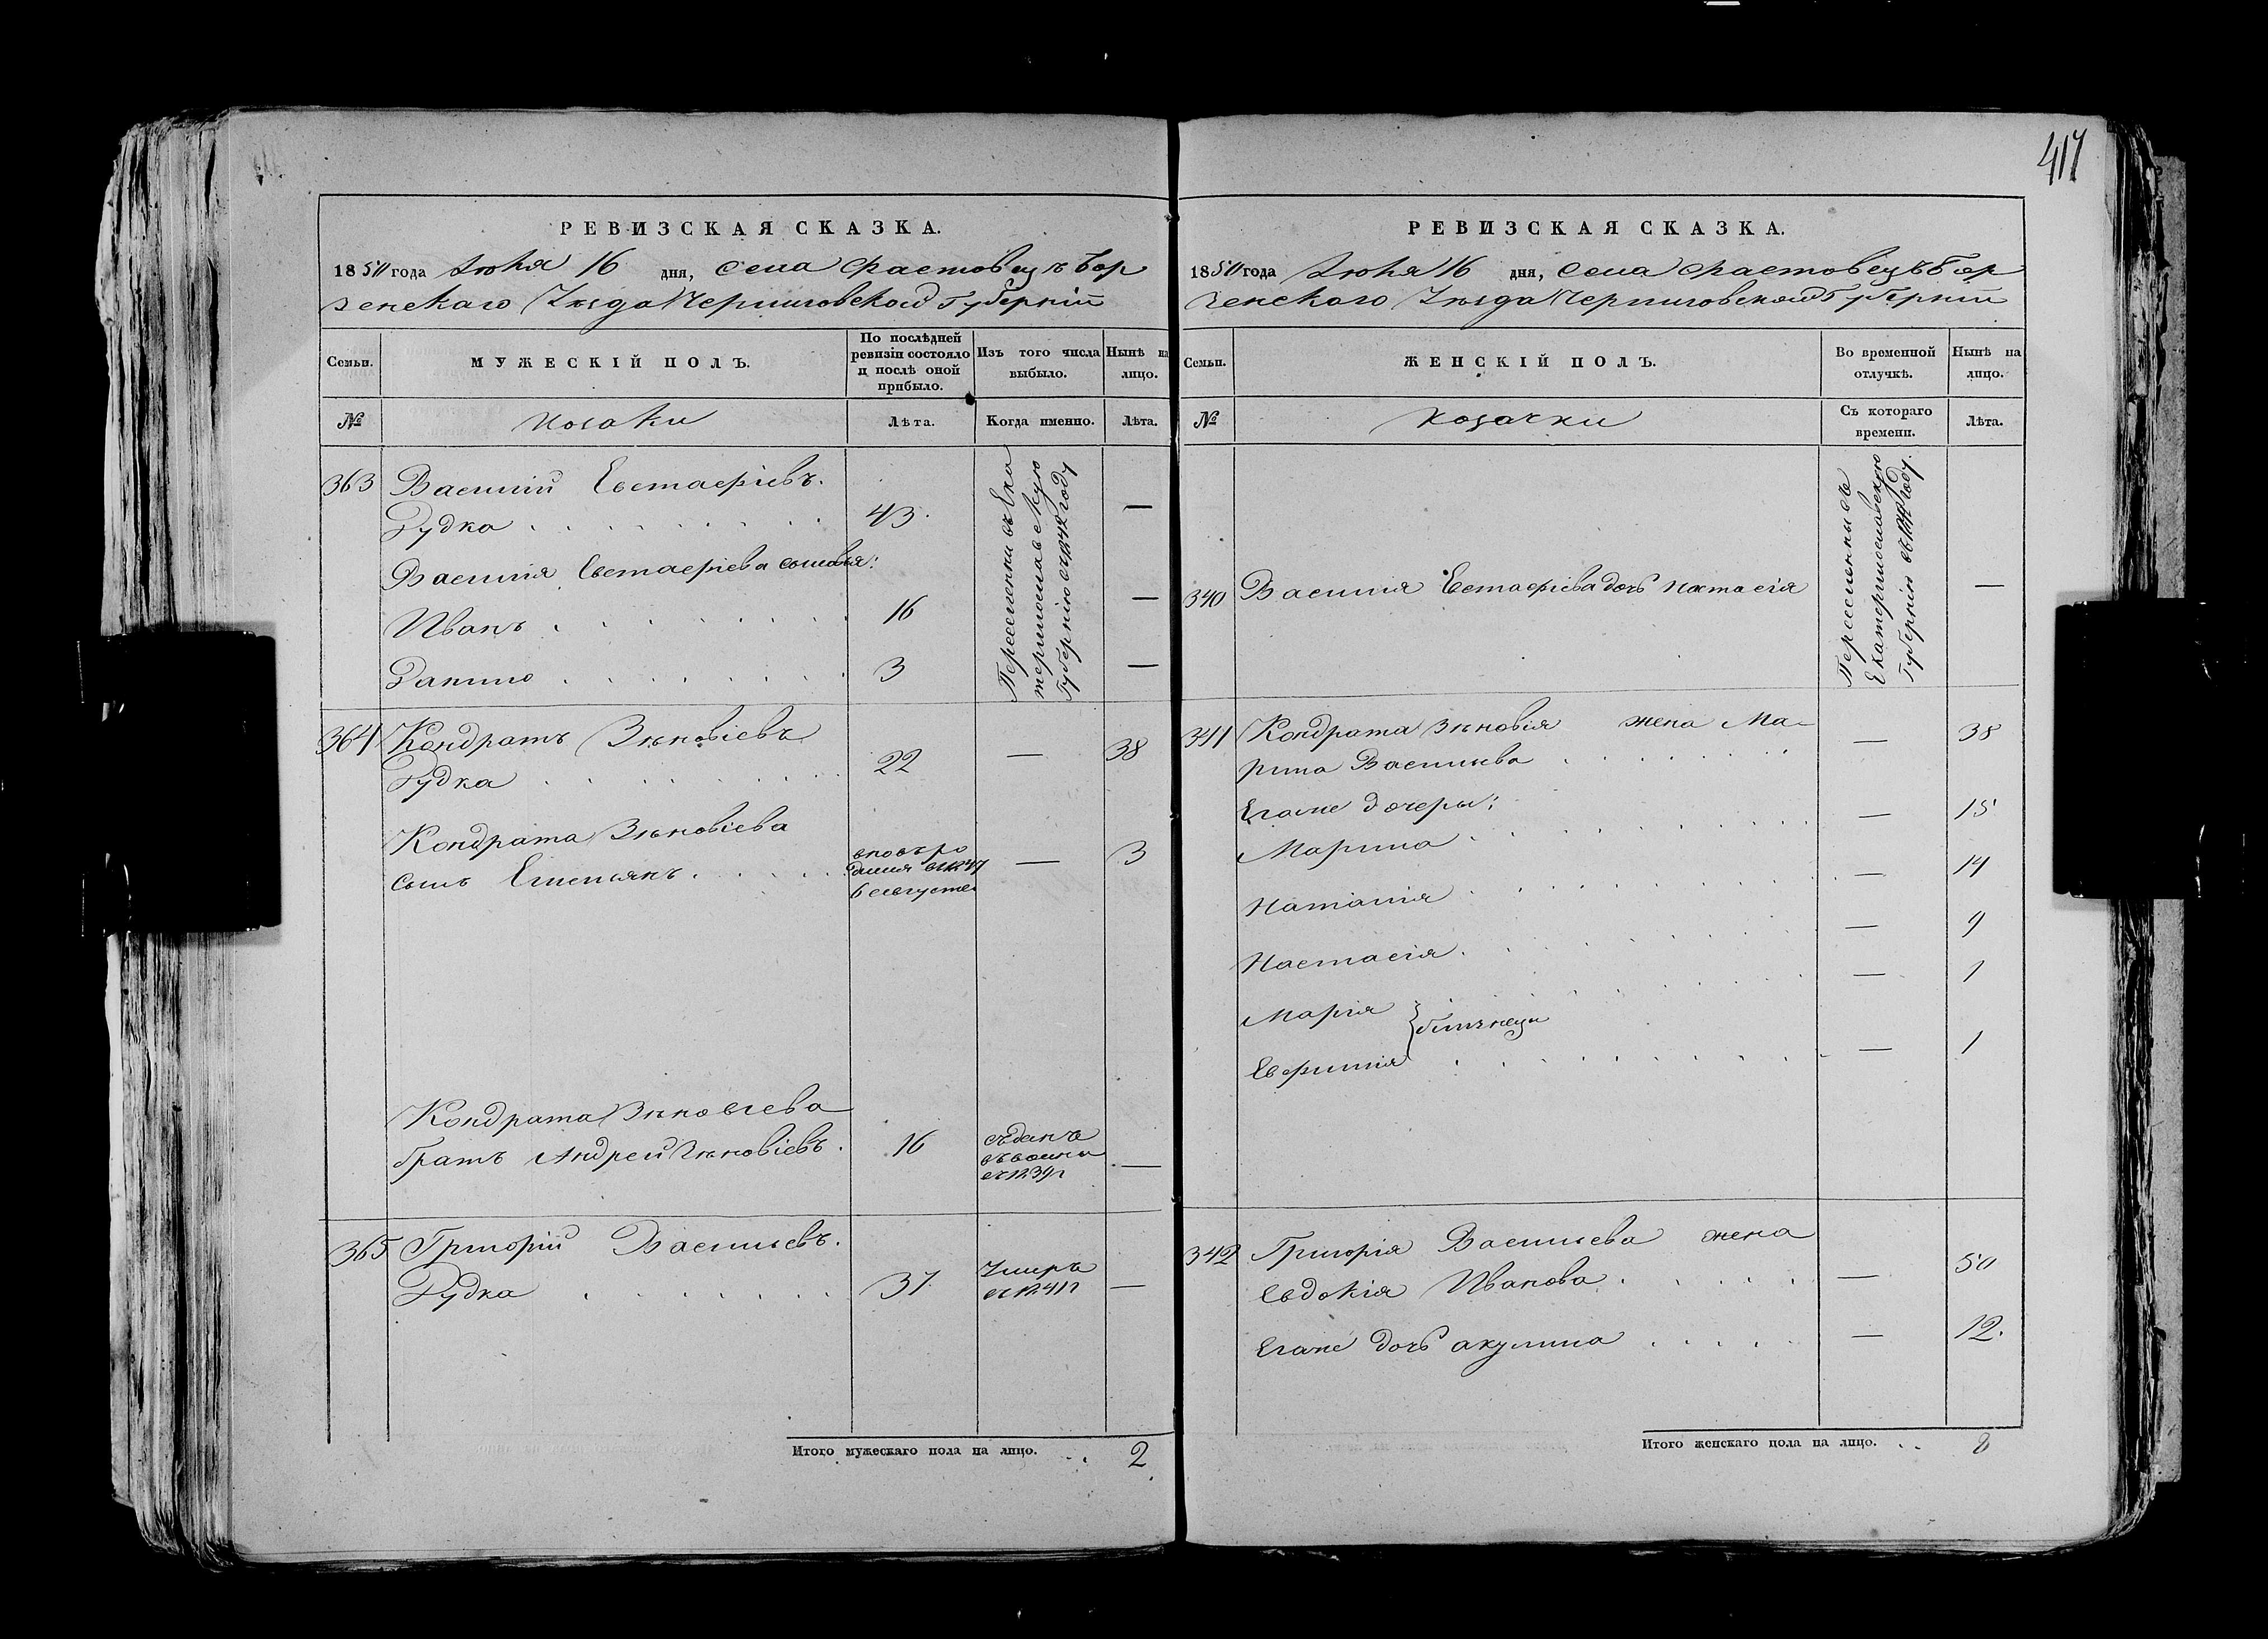 417
РЕВИЗСКАЯ СКАЗКА.
1850 года Июня 16 дня, села Фастовецъ Бор
зенскаго Уезда Черниговской Губерніи
Семьи.
МУЖЕСКІЙ ПОЛЪ.
По послѣдней ревизіи состояло и послѣ оной прибыло.
Изъ того числа выбыло.
Нынѣ на лицо.
№
Козаки
Лѣта.
Когда именно.
Лѣта.
363 Василий Евстафіевъ.
Рудка 43. —
Переселенъ въ Ека
теринославскую
Губернію въ 1842 году
Василія Евстафіева сыновья:
Иванъ 16 —
Данило 3 —
364 Кондратъ Зѣновіевъ
Рудка 22 — 38
Кондрата Зѣновіева
сынъ Емельянъ вновь ро
1847
6 августа — 3
Кондрата Зѣновіева
братъ Андрей Зѣновіевъ. 16 отданъ
въ 1839 г —
365 Григорій Васильевъ.
Рудка 37 Умеръ
въ 1841 г —
Итого мужескаго пола на лицо. 2
РЕВИЗСКАЯ СКАЗКА.
1850 года Июня 16 дня, села Фастовецъ Бор
зенскаго Уезда Черниговской Губерніи
Семьи.
ЖЕНСКІЙ ПОЛЪ.
Во временной отлучкѣ.
Нынѣ на лицо.
№
Козачки
Съ котораго времени.
Лѣта.
340 Василія Евстафіева дочь Настасія —
Переселены въ
Екатеринославскую
Губернію въ 1842 году.
341 Кондрата Зѣновія жена Ма-
рина Васильева — 38
Егоже дочери:
Марина — 15
Наталія — 14
Настасія — 9
Марія — 1
близнецы
Евфимія — 1
342 Григорія Васильева жена
Евдокія Иванова — 50
Егоже дочь Акулина — 12.
Итого женскаго пола на лицо. 8